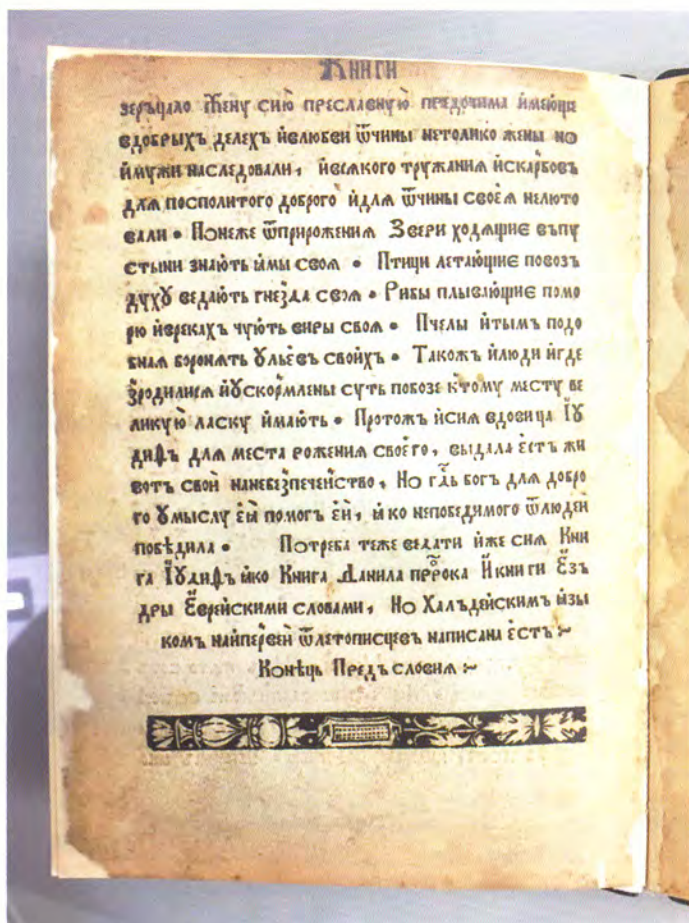 Книги
зерьцало Жену сию преславную предочима и҆меюще
вдобрыхъ делехъ и҆влюбви ѿчины нетолико жены но
и҆мужи наследовали, и҆всякого тружания и҆скарбовъ
для посполитого доброго и҆для ѿчины своея нелюто
вали • Понеже ѿприрожения Звери ходящие въпу
стыни знають ꙗмы своя • Птици летающие повозъ
духу ведають гнезда своя • Рибы плывающие помо
рю и҆вреках чують виры своя • Пчелы и҆тымъ подо
бная боронять ꙋльевъ своихъ • Такожъ и҆люди и҆где
зродилися и҆ꙋскормлены суть побозе ктому месту ве
ликую ласку и҆мають • Протожъ и҆сия вдовица Іꙋ
дифь для места рожения своего, выдала естъ жи
вотъ свой нанебезпеченство, Но гдь богъ для добро
го ꙋмыслу еꙗ помогъ ей, ꙗко непобедимого ѿлюдей
побѣдила • Потреба теже ведати и҆же сия Кни
га Іꙋдифь ꙗко Книга Данила пррока И҆книги Ез
дры Еврейскими словами, Но Халъдейскимъ ꙗзы
комъ найпервей ѿлетописцевъ написана естъ
Конѣць Предъсловия